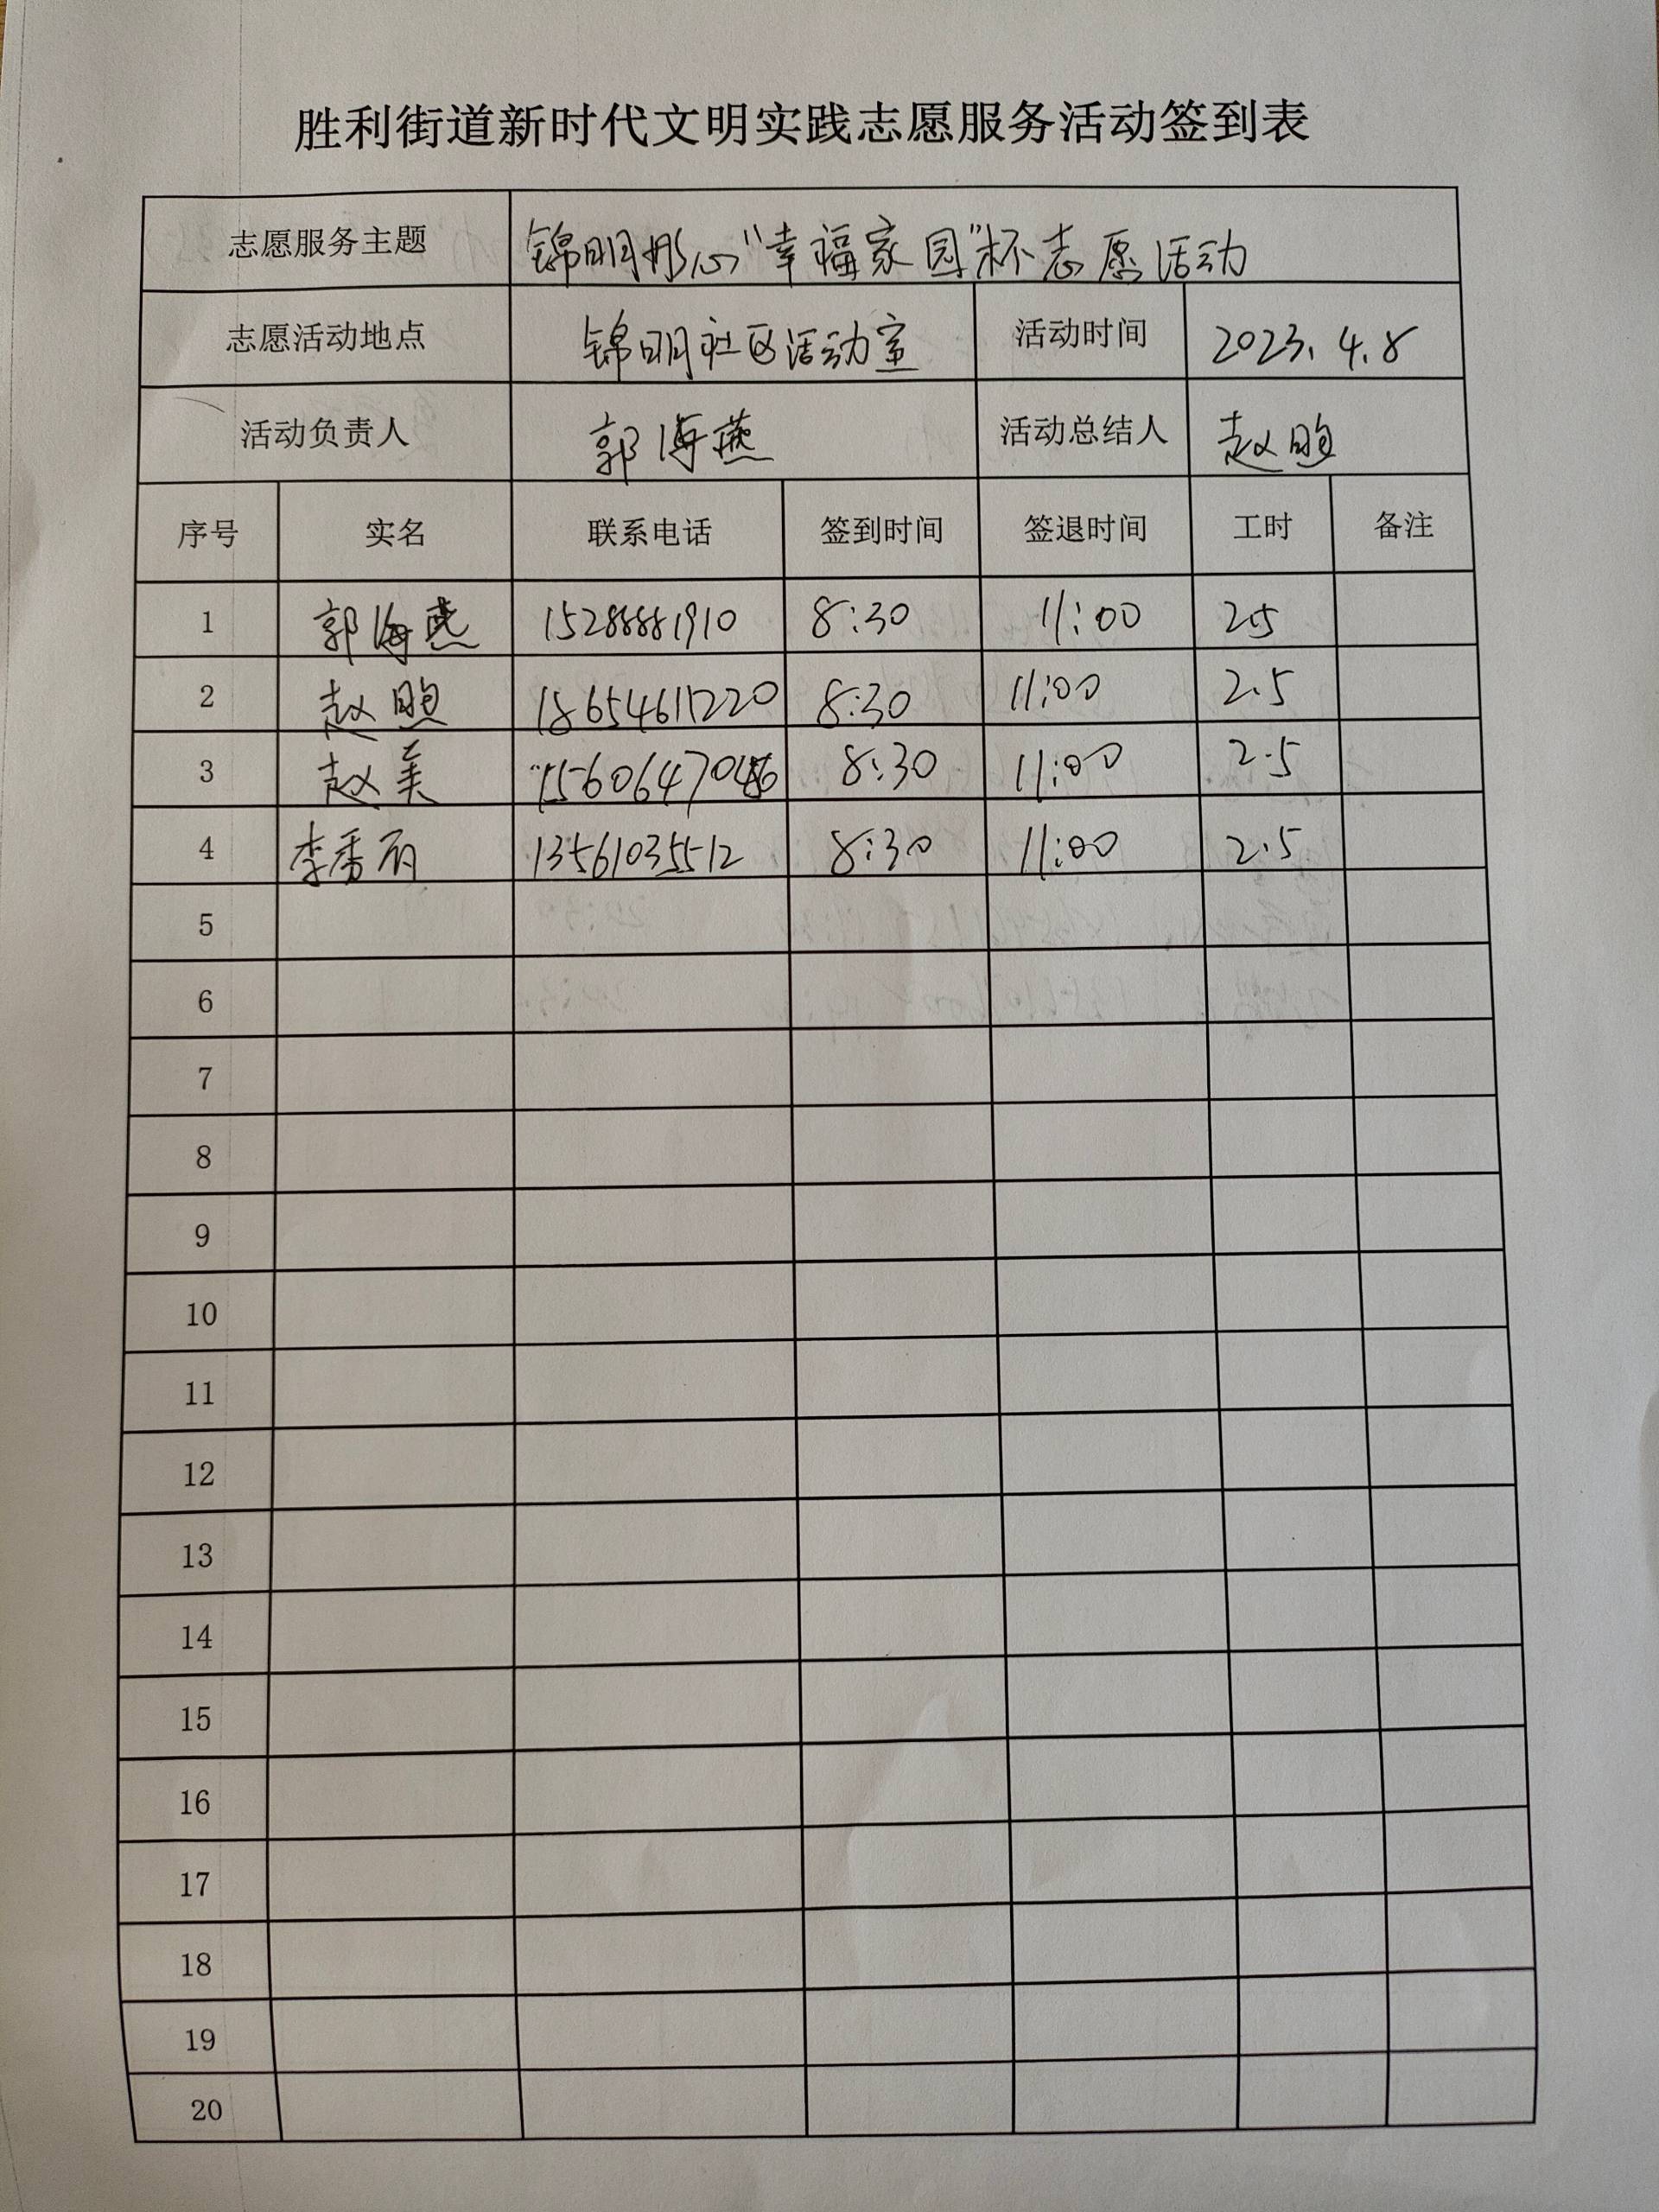 胜利街道新时代文明实践志愿服务活动签到表
志愿服务主题 锦明彤心“幸福家园”杯志愿活动
志愿活动地点 锦明社区活动室 活动时间 2023.4.8
活动负责人 郭海燕 活动总结人 赵煦
序号 实名 联系电话 签到时间 签退时间 工时 备注
1 郭海燕 15288881910 8:30 11:00 2.5
2 赵煦 18654611220 8:30 11:00 2.5
3 赵美 8:30 11:00 2.5
4 李秀丽 13561035512 8:30 11:00 2.5
5
6
7
8
9
10
11
12
13
14
15
16
17
18
19
20